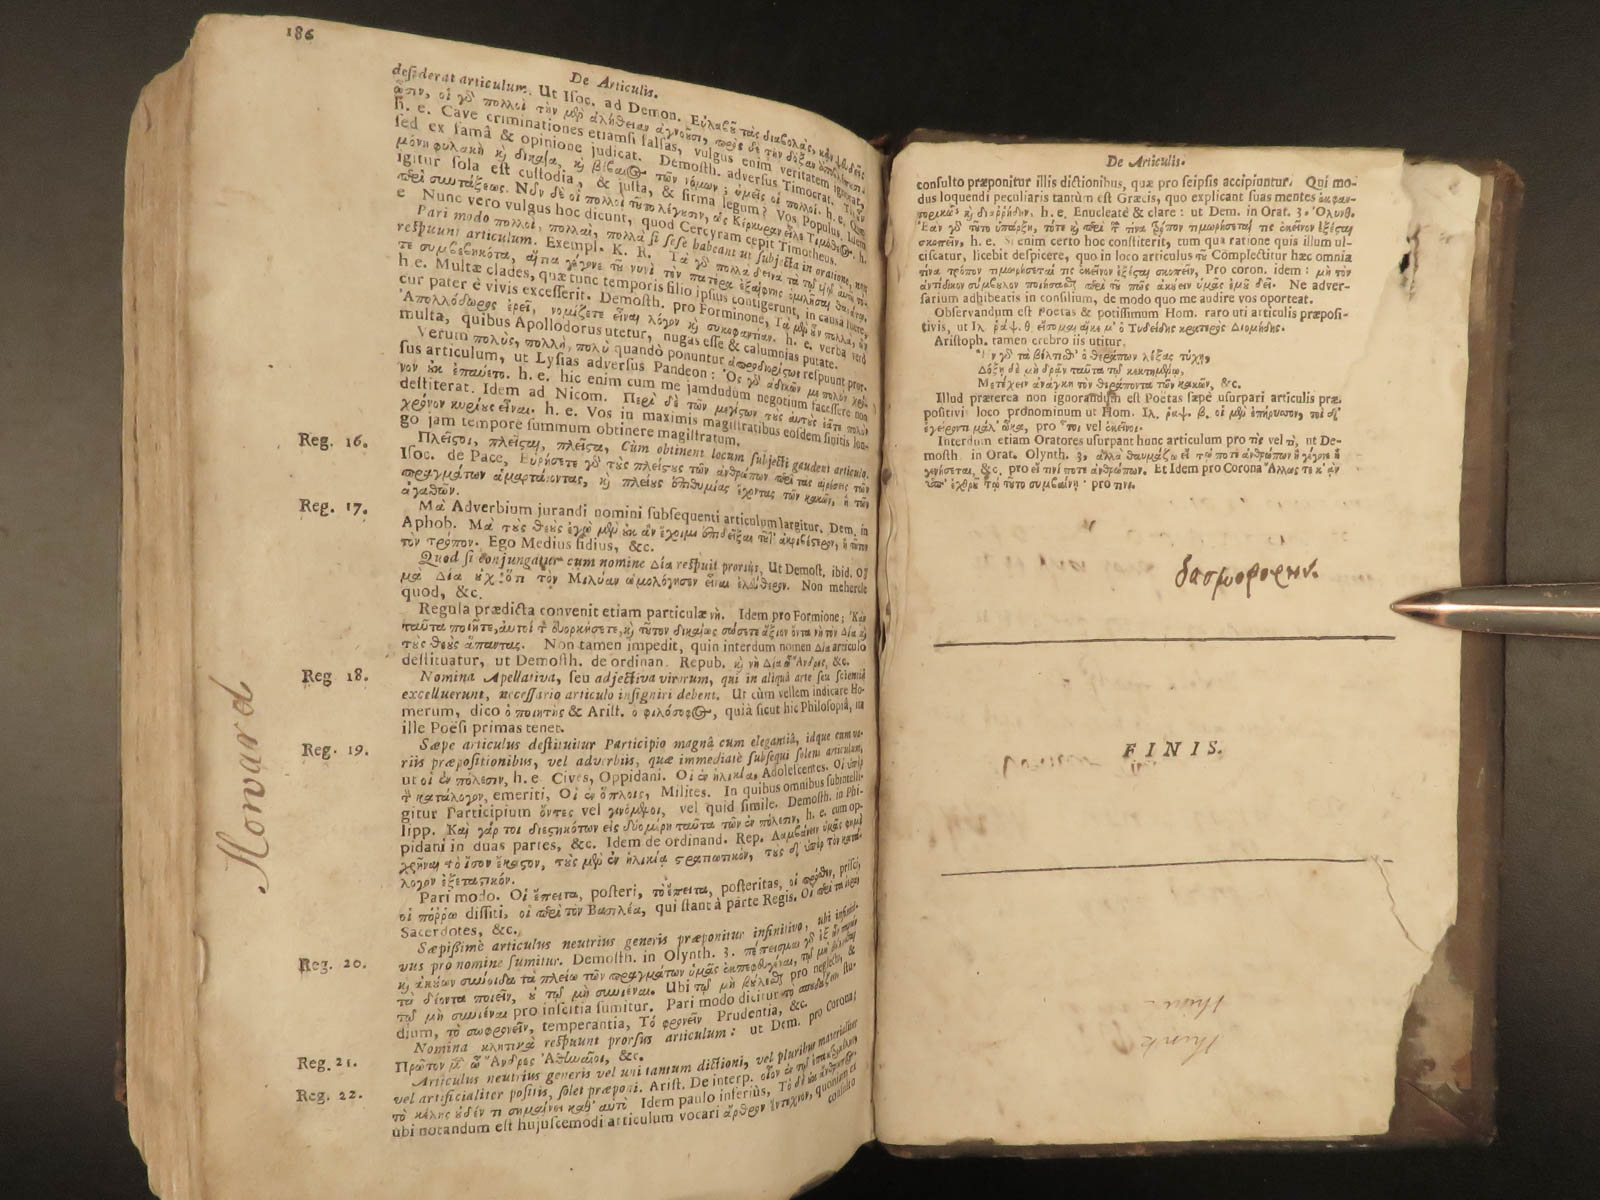 186
De Articulis.
desiderat articulum. Ut Isoc. ad Demon. Εὐλαβοῦ τὰς διαβολὰς, κἂν ψευδεῖς
ὦσιν, οἱ γὸ πολλοὶ τὴν μὲν ἀλήθειαν ἀγνοῦσι, πρὸς δὲ τὴν δόξαν
h. e. Cave criminationes etiamsi falsas, vulgus enim veritatem ignorat,
sed ex famâ & opinione judicat. Demosth. adversus Timocrat. Τίς ἦν
μόνη φυλακὴ κὶ δικαία, κὶ βέβαιος τῶν νόμων; ὑμεῖς οἱ πολλοί. h. e. Quæ
igitur sola est custodia, & justa, & firma legum? Vos Populus. Idem
περὶ συντάξεως. Νῦν δὲ οἱ πολλοὶ τῦτο λέγυσιν, ὡς Κέρκυραν εἷλε Τιμόθεος. h.
e Nunc vero vulgus hoc dicunt, quod Cercyram cepit Timotheus.
Pari modo πολλοὶ, πολλαὶ, πολλὰ si sese habeant ut subjecta in oratione, non
respuunt articulum. Exempl. K. R. Τὰ γὸ πολλὰ δεινὰ τὰ
τε συμβεβηκότα, αἴτια γέγονε τῦ νυνὶ τὸν πατέρα ἐξαίφνης
h. e. Multæ clades, quæ tunc temporis filio ipsius contigerunt, in causa fuere,
cur pater è vivis excesserit. Demosth. pro Formione, Τὰ μὲν ὖν πολλὰ, ὧν
Ἀπολλόδωρος ἐρεῖ, νομίζετε εἶναι λόγον κὶ συκοφαντίαν. h. e. verba vero
multa, quibus Apollodorus utetur, nugas esse & calumnias putate.
Verum πολὺς, πολλὴ, πολὺ quandò ponuntur ἀπροσδιορίςως respuunt pror-
sus articulum, ut Lysias adversus Pandeon: Ὃς γὸ ἀδικῶν με πολὺν χρό-
νον ὐκ ἐπαύετο. h. e. hic enim cum me jamdudum negotium facessere non
destiterat. Idem ad Nicom. Περὶ δὲ τῶν μεγίςων τὺς αὐτὺς ἐᾶτε πολὺν
χρόνον κυρίυς εἶναι. h. e. Vos in maximis magistratibus eosdem sinitis lon-
go jam tempore summum obtinere magistratum.
Reg. 16. Πλεῖςοι, πλεῖςαι, πλεῖςα, Cùm obtinent locum subjecti gaudent articulo.
Isoc. de Pace, Εὑρήσετε γὸ τὺς πλείςυς τῶν ἀνθρώπων περὶ τὰς αἱρέσεις τῶν
πραγμάτων ἁμαρτάνοντας, κὶ πλείυς ἐπιθυμίας ἔχοντας τῶν κακῶν, ἢ τῶν
ἀγαθῶν.
Reg. 17. Μὰ Adverbium jurandi nomini subsequenti articulum largitur. Dem. in
Aphob. Μὰ τὺς θεὺς ἐγὼ μὲν ὐκ ἂν ἔχοιμι ἐπιδεῖξαι τῦτ' ἀκριβέςερον, ἢ τῦτον
τὸν τρόπον. Ego Medius fidius, &c.
Quod si conjungatur cum nomine Δία respuit prorsùs, Ut Demost. ibid. Οὐ
μὰ Δία ὐχ' ὅτι τὸν Μιλύαν ὡμολόγησεν εἶναι ἐλεύθερον. Non mehercle
quod, &c.
Regula prædicta convenit etiam particulæ νή. Idem pro Formione; Κἂν
ταῦτα ποιῆτε, αὐτοί τ' εὐορκήσετε, κὶ τῦτον δικαίως σώσετε ἄξιον ὄντα νὴ τὸν Δία κὶ
τὺς θεὺς ἅπαντας. Non tamen impedit, quin interdum nomen Δία articulo
destituatur, ut Demosth. de ordinan. Repub. κὶ νὴ Δία ὦ Ἄνδρες, &c.
Reg 18. Nomina Apellativa, seu adjectiva virorum, qui in aliquâ arte seu scientiâ
excelluerunt, necessario articulo insigniri debent. Ut cùm vellem indicare Ho-
merum, dico ὁ ποιητὴς & Arist. ὁ φιλόσοφος, quià sicut hic Philosopiâ, ita
ille Poësi primas tenet.
Reg. 19. Sæpe articulus destituitur Participio magnâ cum elegantiâ, idque cum va-
riis præpositionibus, vel adverbiis, quæ immediatè subsequi solent articulum,
ut οἱ ἐν πόλεσιν, h. e. Cives, Oppidani. Οἱ ἐν ἡλικίᾳ. Adolescentes. Οἱ ὑπὲρ
τ κατάλογον, emeriti, Οἱ ἐν ὅπλοις, Milites. In quibus omnibus subintelli-
gitur Participium ὄντες vel γινόμενοι, vel quid simile. Demosth. in Phi-
lipp. Καὶ γάρ τοι διεςηκότων εἰς δύο μέρη ταῦτα τῶν ἐν πόλεσιν, h. e. cum op-
pidani in duas partes, &c. Idem de ordinand. Rep. Λαμβάνειν ὑμᾶς φημὶ
χρῆναι τὸ ἴσον ἕκαςον, τὺς μὲν ἐν ἡλικίᾳ ςρατιωτικὸν, τὺς δ' ὑπὲρ τὸν κατά-
λογον ἐξεταςικόν.
Pari modo. Οἱ ἔπειτα, posteri, τὸ ἔπειτα, posteritas, οἱ πρόσθεν, prisci,
οἱ πόῤῥω dissiti, οἱ περὶ τὸν Βασιλέα, qui stant à parte Regis. Οἱ περὶ τὰ ἱερὰ
Sacerdotes, &c.
Reg. 20. Sæpissimè articulus neutrius generis præponitur infinitivo, ubi infiniti-
vus pro nomine sumitur. Demosth. in Olynth. 3. πέπεισμαι γὸ ἐξ ὧν παρὼν
κὶ ἀκύων σύνοιδα τὰ πλείω τῶν πραγμάτων ὑμᾶς ἐκπεφευγέναι, τῷ μὴ βύλεσθαι
τὰ δέοντα ποιεῖν, ἢ τῷ μὴ συνιέναι. Ubi τῷ μὴ βύλεσθαι pro neglectu, &
τῷ μὴ συνιέναι pro inscitia sumitur. Pari modo dicitur τὸ σπυδάζειν stu-
dium, τὸ σωφρονεῖν, temperantia, Τὸ φρονεῖν Prudentia, &c.
Reg. 21. Nomina κλητικὰ respuunt prorsus articulum: ut Dem. pro Corona;
Πρῶτον μὲν ὦ Ἄνδρες Ἀθηναῖοι, &c.
Reg. 22. Articulus neutrius generis vel uni tantum dictioni, vel pluribus materialiter
vel artificialiter positis, solet præponi. Arist. De interp. οἷον ἐν τῷ
τὸ κάλης ὐδέν τι σημαίνει καθ' αὑτὸ Idem paulo inferiùs, Τὸ δὲ ὐκ ἄνθρωπος.
ubi notandum est hujuscemodi articulum vocari ἄρθρον ἔντεχνον, quoniam ei
consulto
Howard
De Articulis.
consulto præponitur illis dictionibus, quæ pro seipsis accipiuntur. Qui mo-
dus loquendi peculiaris tantùm est Græcis, quo explicant suas mentes ἐκφαν-
τορικῶς κὶ διαρρήδην. h. e. Enucleatè & clare: ut Dem. in Orat. 3. Ὀλυνθ.
Ἐὰν γὸ τῦτο ὑπάρξῃ, τότε κὶ περὶ τ τίνα τρόπον τιμωρήσεταί τις ἐκεῖνον ἐξέςαι
σκοπεῖν, h. e. Si enim certo hoc constiterit, tum qua ratione quis illum ul-
ciscatur, licebit despicere, quo in loco articulus τῦ Complectitur hæc omnia
τίνα τρόπον τιμωρήσεταί τις ἐκεῖνον ἐξέςαι σκοπεῖν, Pro coron. idem: μὴ τὸν
ἀντίδικον σύμβυλον ποιήσασθαι περὶ τῦ πῶς ἀκύειν ὑμᾶς ἐμῦ δεῖ. Ne adver-
sarium adhibeatis in consilium, de modo quo me audire vos oporteat.
Observandum est Poetas & potissimum Hom. raro uti articulis præposi-
tivis, ut Ιλ. ῥάψ. θ. εἴσομαι αἴκε μ' ὁ Τυδείδης κρατερὸς Διομήδης.
Aristoph. tamen crebro iis utitur.
Ἢν γὸ τὰ βέλτισθ' ὁ θεράπων λέξας τύχῃ,
Δόξῃ δὲ μὴ δρᾶν ταῦτα τῷ κεκτημένῳ,
Μετέχειν ἀνάγκη τὸν θεράποντα τῶν κακῶν, &c.
Illud præterea non ignorandum est Poëtas sæpè usurpari articulis præ-
positivi: loco prónominum ut Hom. Ιλ. ῥαψ. β. οἱ μὲν ἐκήρυσσον, τοὶ δ'
ἠγείροντο μάλ' ὦκα, pro τοι vel ἐκεῖνοι.
Interdum etiam Oratores usurpant hunc articulum pro τὶς vel τὶ, ut De-
mosth. in Orat. Olynth. 3, ἀλλὰ θαυμάζω εἴ τῳ ποτὲ ἀνθρώπων ἢ γέγονε ἢ
γενήσεται, &c. pro εἴ τινί ποτε ἀνθρώπων. Et Idem pro Corona Ἄλλως τε κ' ἂν
ὑπ' ἐχθρῦ τῳ τῦτο συμβαίνῃ· pro τινι.
δασμοφορειν.
FINIS.
think